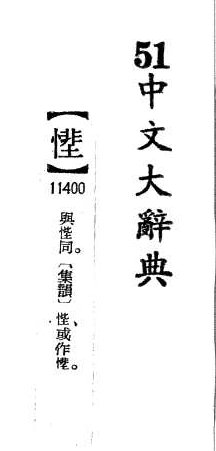 51中文大辭典
【】
11400
與同。〔集韻〕、或作。